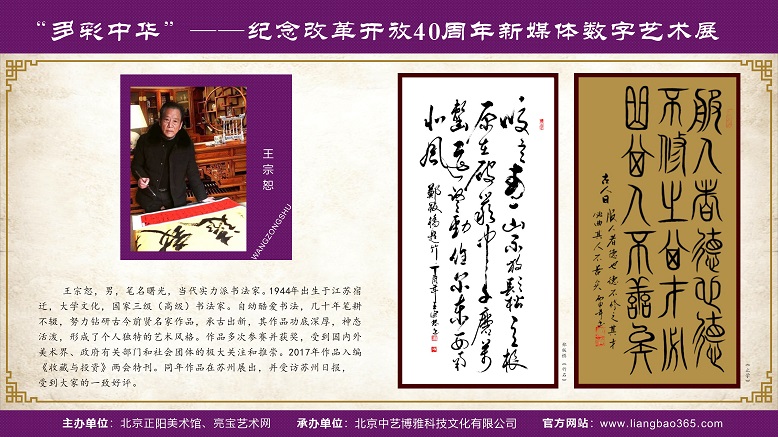 “多彩中华”——纪念改革开放40周年新媒体数字艺术展
王宗恕
WANGZONGSHU
王宗恕，男，笔名曙光，当代实力派书法家。1944年出生于江苏宿
迁，大学文化，国家三级（高级）书法家。自幼酷爱书法，几十年笔耕
不辍，努力钻研古今前贤名家作品，承古出新，其作品功底深厚，神态
活泼，形成了个人独特的艺术风格。作品多次参赛并获奖，受到国内外
美术界、政府有关部门和社会团体的极大关注和推崇。2017年作品入编
《收藏与投资》两会特刊。同年作品在苏州展出，并受访苏州日报，
受到大家的一致好评。
咬定青山不放鬆立根
原在破巖中千磨萬
擊還堅勁任爾東西南
北風
鄭板橋題竹
郑板桥《竹石》
服人者德也德
不修之其才必
曲其人不善矣
古人曰 服人者德也德不修之其才
必曲其人不善矣
主办单位：北京正阳美术馆、亮宝艺术网 承办单位：北京中艺博雅科技文化有限公司 官方网站：www.liangbao365.com